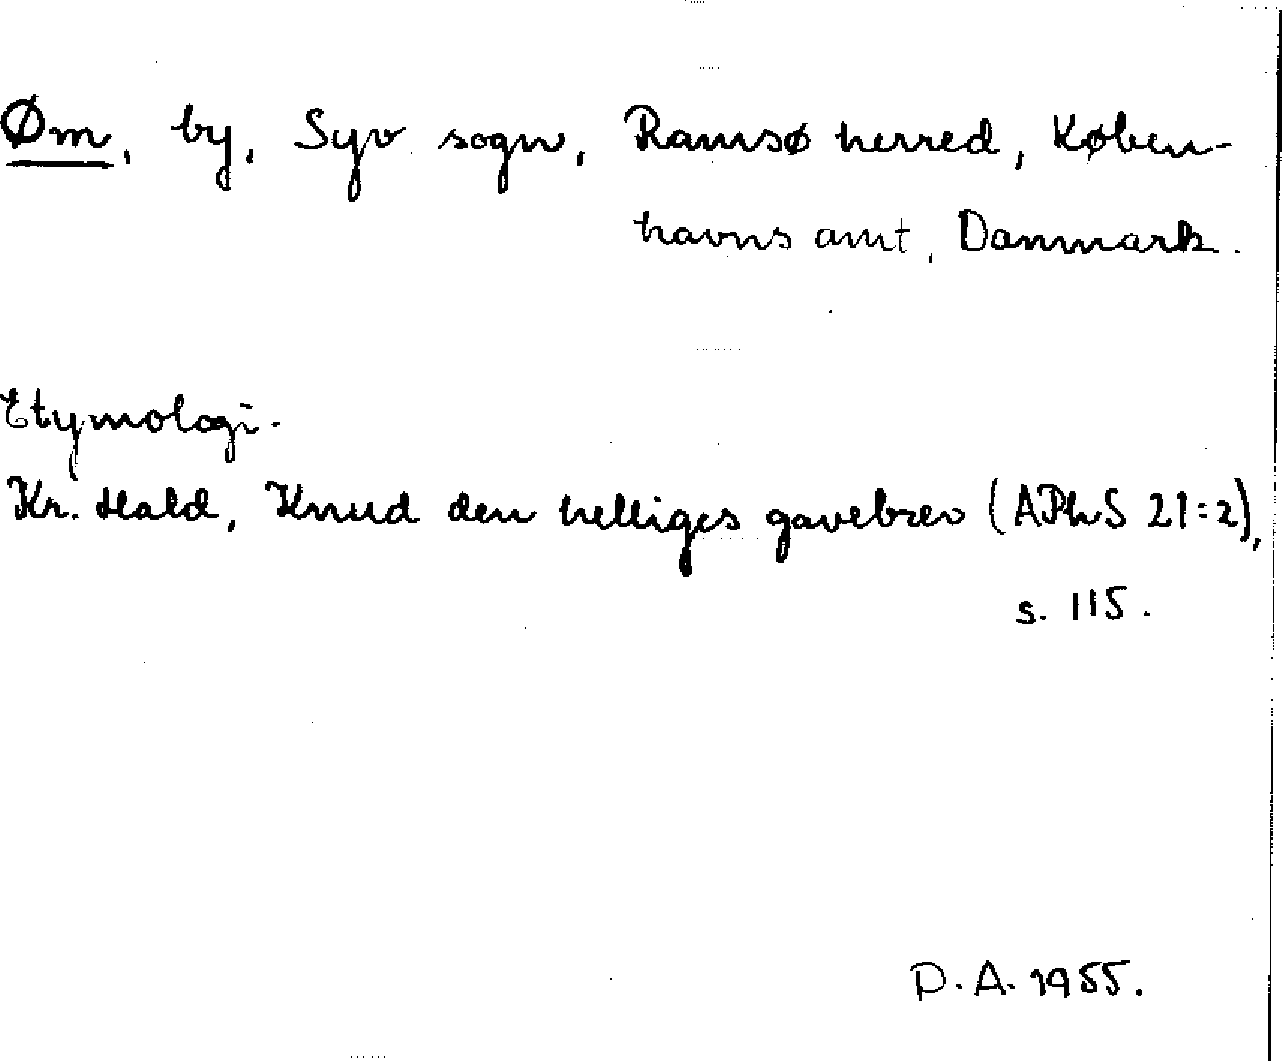 Øm, by, Syv sogn, Ramsø herred, Køben-
havns amt, Danmark.
Etymologi.
Kr. Hald, Knud den helliges gavebrev (APhS 21:2),
s. 115.
D.A. 1955.